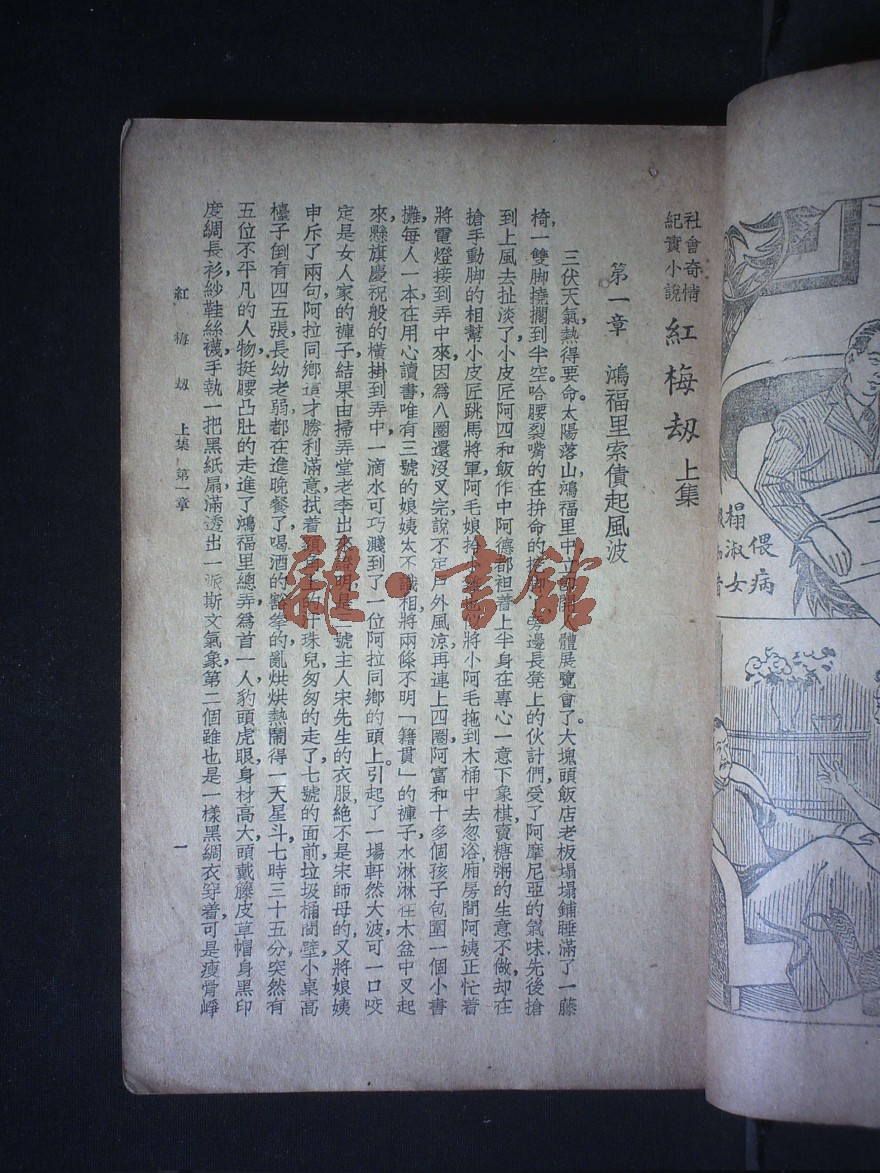 社會奇情
紀實小說
紅梅刼 上集
第一章　鴻福里索債起風波
三伏天氣熱得要命。太陽落山鴻福里中立卽開人體展覽會了。大塊頭飯店老板塌塌鋪睡滿了一藤
椅，一雙脚擱到半空哈腰裂嘴的在拚命的　旁邊長凳上的伙計們，受了阿摩尼亞的氣味先後搶
到上風去扯淡了，小皮匠阿四和飯作中阿德都袒着上半身在專心一意下象棋，賣糖粥的生意不做，却在
搶手動脚的相幫小皮匠跳馬將軍，阿毛娘　將小阿毛拖到木桶中去忽浴，廂房間阿姨正忙着
將電燈接到弄中來，因爲八圈還沒叉完，說不定戶外風涼再連上四圈，阿富和十多個孩子包圍一個小書
攤，每人一本在用心讀書，唯有三號的娘姨太不識相，將兩條不明「籍貫」的褲子水淋淋在木盆中叉起
來，懸旗慶祝般的橫掛到弄中，一滴水可巧濺到了一位阿拉同鄉的頭上。引起了一場軒然大波，可一口咬
定是女人家的褲子，結果由掃弄堂老李出來證明，是二號主人宋先生的衣服，絕不是宋師母的，又將娘姨
申斥了兩句，阿拉同鄉這才勝利滿意，拭着頭上的汗珠兒匆匆的走了，七號的面前垃圾桶間壁，小桌高
檯子倒有四五張，長幼老弱都在進晚餐了，喝酒的豁拳的亂烘烘熱鬧得一天星斗，七時三十五分，突然有
五位不平凡的人物，挺腰凸肚的走進了鴻福里總弄，爲首一人，豹頭虎眼，身材高大，頭戴籐皮草帽，身黑印
度綢長衫，紗鞋絲襪，手執一把黑紙扇，滿透出一派斯文氣象，第二個雖也是一樣黑綢衣穿着，可是瘦骨崢
紅梅刼　上集　第一章　一
雜·書館
偎病
榻淑女